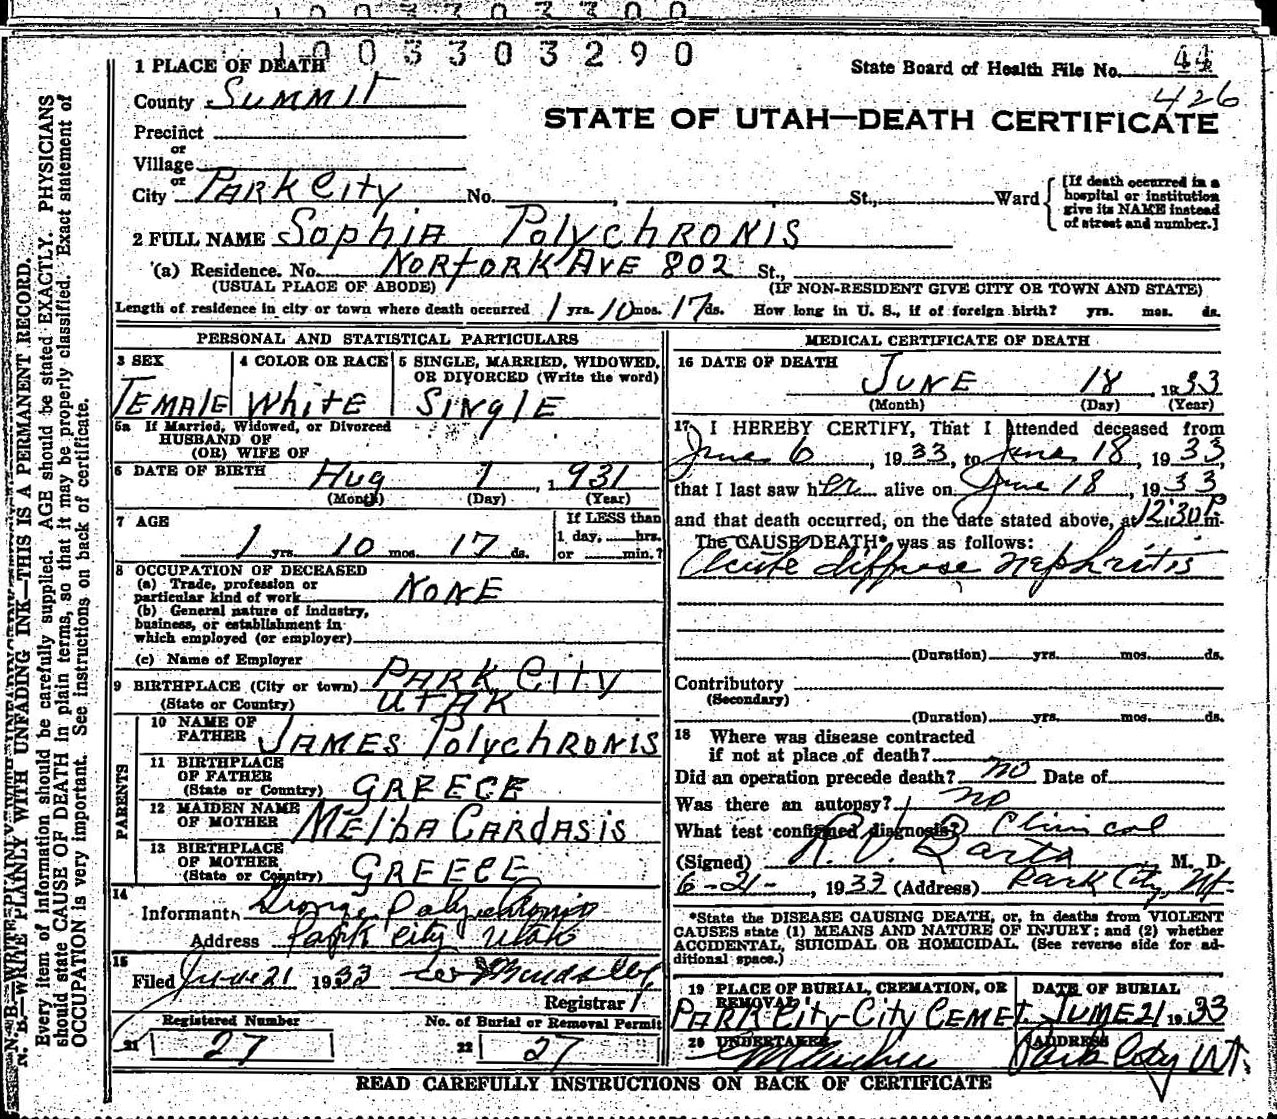 1003303290
1 PLACE OF DEATH
State Board of Health File No. 44
County Summit
426
STATE OF UTAH—DEATH CERTIFICATE
Precinct
or
Village
or
City PARK City No. , , St., Ward
[If death occurred in a
hospital or institution
give its NAME instead
of street and number.]
2 FULL NAME Sophia Polychronis
(a) Residence. No. Norfork Ave 802 St.,
(USUAL PLACE OF ABODE) (IF NON-RESIDENT GIVE CITY OR TOWN AND STATE)
Length of residence in city or town where death occurred 1 yrs. 10 mos. 17 ds. How long in U. S., if of foreign birth? yrs. mos. ds.
PERSONAL AND STATISTICAL PARTICULARS
3 SEX 4 COLOR OR RACE 5 SINGLE, MARRIED, WIDOWED,
OR DIVORCED (Write the word)
Female White Single
5a If Married, Widowed, or Divorced
HUSBAND OF
(OR) WIFE OF
6 DATE OF BIRTH Aug 1 1931
(Month) (Day) (Year)
7 AGE
1 yrs. 10 mos. 17 ds.
If LESS than
1 day, hrs.
or min.?
8 OCCUPATION OF DECEASED
(a) Trade, profession or
particular kind of work NONE
(b) General nature of industry,
business, or establishment in
which employed (or employer)
(c) Name of Employer
9 BIRTHPLACE (City or town) PARK City
(State or Country) UTAH
PARENTS
10 NAME OF
FATHER JAMES Polychronis
11 BIRTHPLACE
OF FATHER
(State or Country) GREECE
12 MAIDEN NAME
OF MOTHER Melba Cardasis
13 BIRTHPLACE
OF MOTHER
(State or Country) GREECE
14
Informant George Polychronis
Address Park City Utah
15
Filed June 21 1933
Registrar
Registered Number No. of Burial or Removal Permit
21 27 22 27
MEDICAL CERTIFICATE OF DEATH
16 DATE OF DEATH
JUNE 18 1933
(Month) (Day) (Year)
17 I HEREBY CERTIFY, That I attended deceased from
June 6, 1933, to June 18, 1933,
that I last saw her alive on June 18, 1933
and that death occurred, on the date stated above, at 12:30 P m.
The CAUSE DEATH* was as follows:
Acute diffuse nephritis
(Duration) yrs. mos. ds.
Contributory
(Secondary)
(Duration) yrs. mos. ds.
18 Where was disease contracted
if not at place of death?
Did an operation precede death? no Date of
Was there an autopsy? no
What test confirmed diagnosis? Clinical
(Signed) R. V. Larta M. D.
6-21-, 1933 (Address) Park City, Ut-
*State the DISEASE CAUSING DEATH, or, in deaths from VIOLENT
CAUSES state (1) MEANS AND NATURE OF INJURY; and (2) whether
ACCIDENTAL, SUICIDAL OR HOMICIDAL. (See reverse side for ad-
ditional space.)
19 PLACE OF BURIAL, CREMATION, OR
REMOVAL
DATE OF BURIAL
PARK City-City CEMET. JUNE 21 1933
20 UNDERTAKER ADDRESS
Park City Ut.
READ CAREFULLY INSTRUCTIONS ON BACK OF CERTIFICATE
N. B.—WRITE PLAINLY WITH UNFADING INK—THIS IS A PERMANENT RECORD.
Every item of information should be carefully supplied. AGE should be stated EXACTLY. PHYSICIANS
should state CAUSE OF DEATH in plain terms, so that it may be properly classified. Exact statement of
OCCUPATION is very important. See instructions on back of certificate.